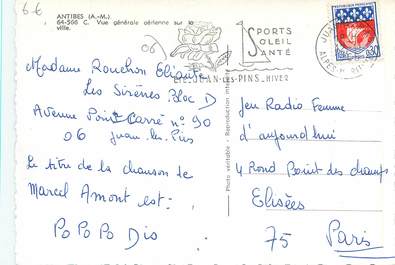 6-6
ANTIBES (A.-M.)
64-566 C. Vue générale aérienne sur la
ville.
06)
SPORTS
SOLEIL
SANTÉ
JUAN-LES-PINS.HIVER
JUA
ALPES-M
0,30
Madame Rouchon Eliane
Les Sirènes Bloc D
Avenue Point Carré n° 90
06 juan. les Pins
Le titre de la chanson de
Marcel Amont est:
Po Po Po Dis
Photo véritable - Reproduction
Jeu Radio Femme
d'aujourd'hui
4 Rond Point des champs
Elisées
75 Paris